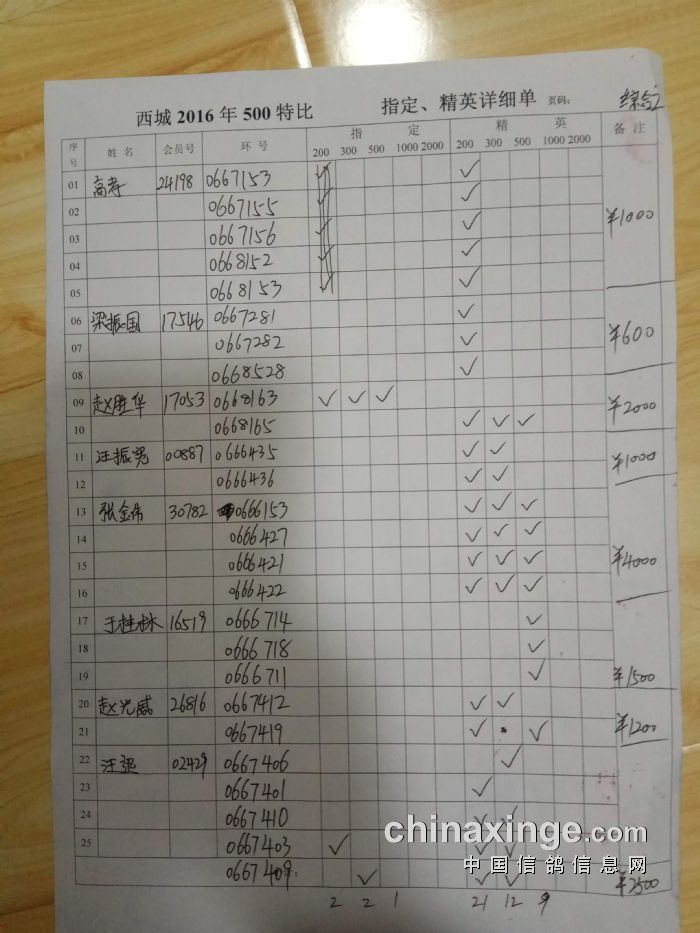 西城 2016 年 500 特比 指定、精英详细单 页码： 综合2
序号 姓名 会员号 环号 指定 精英 备注
200 300 500 1000 2000 200 300 500 1000 2000
01 高寿 24198 0667153 ✓ ✓
02 0667155 ✓ ✓
03 0667156 ✓ ✓ ¥1000
04 0668152 ✓ ✓
05 0668153 ✓ ✓
06 梁振国 17546 0667281 ✓
07 0667282 ✓ ¥600
08 0668528 ✓
09 赵胜华 17053 0668163 ✓ ✓ ✓ ¥2000
10 0668165 ✓ ✓ ✓
11 汪振宽 00887 0666435 ✓ ✓ ¥1000
12 0666436 ✓ ✓
13 张金伟 30782 0666153 ✓ ✓ ✓
14 0666427 ✓ ✓ ✓
15 0666421 ✓ ✓ ✓ ¥4000
16 0666422 ✓ ✓ ✓
17 于桂林 16519 0666714 ✓
18 0666718 ✓
19 0666711 ✓ ¥1500
20 赵光威 26816 0667412 ✓ ✓
21 0667419 ✓ ✓ ¥1200
22 汪强 02429 0667406 ✓
23 0667401 ✓
24 0667410 ✓ ✓
25 0667403 ✓ ✓ ✓
0667409 ✓ ✓ ✓ ¥2500
2 2 1 21 12 9
chinaxinge.com
中国信鸽信息网